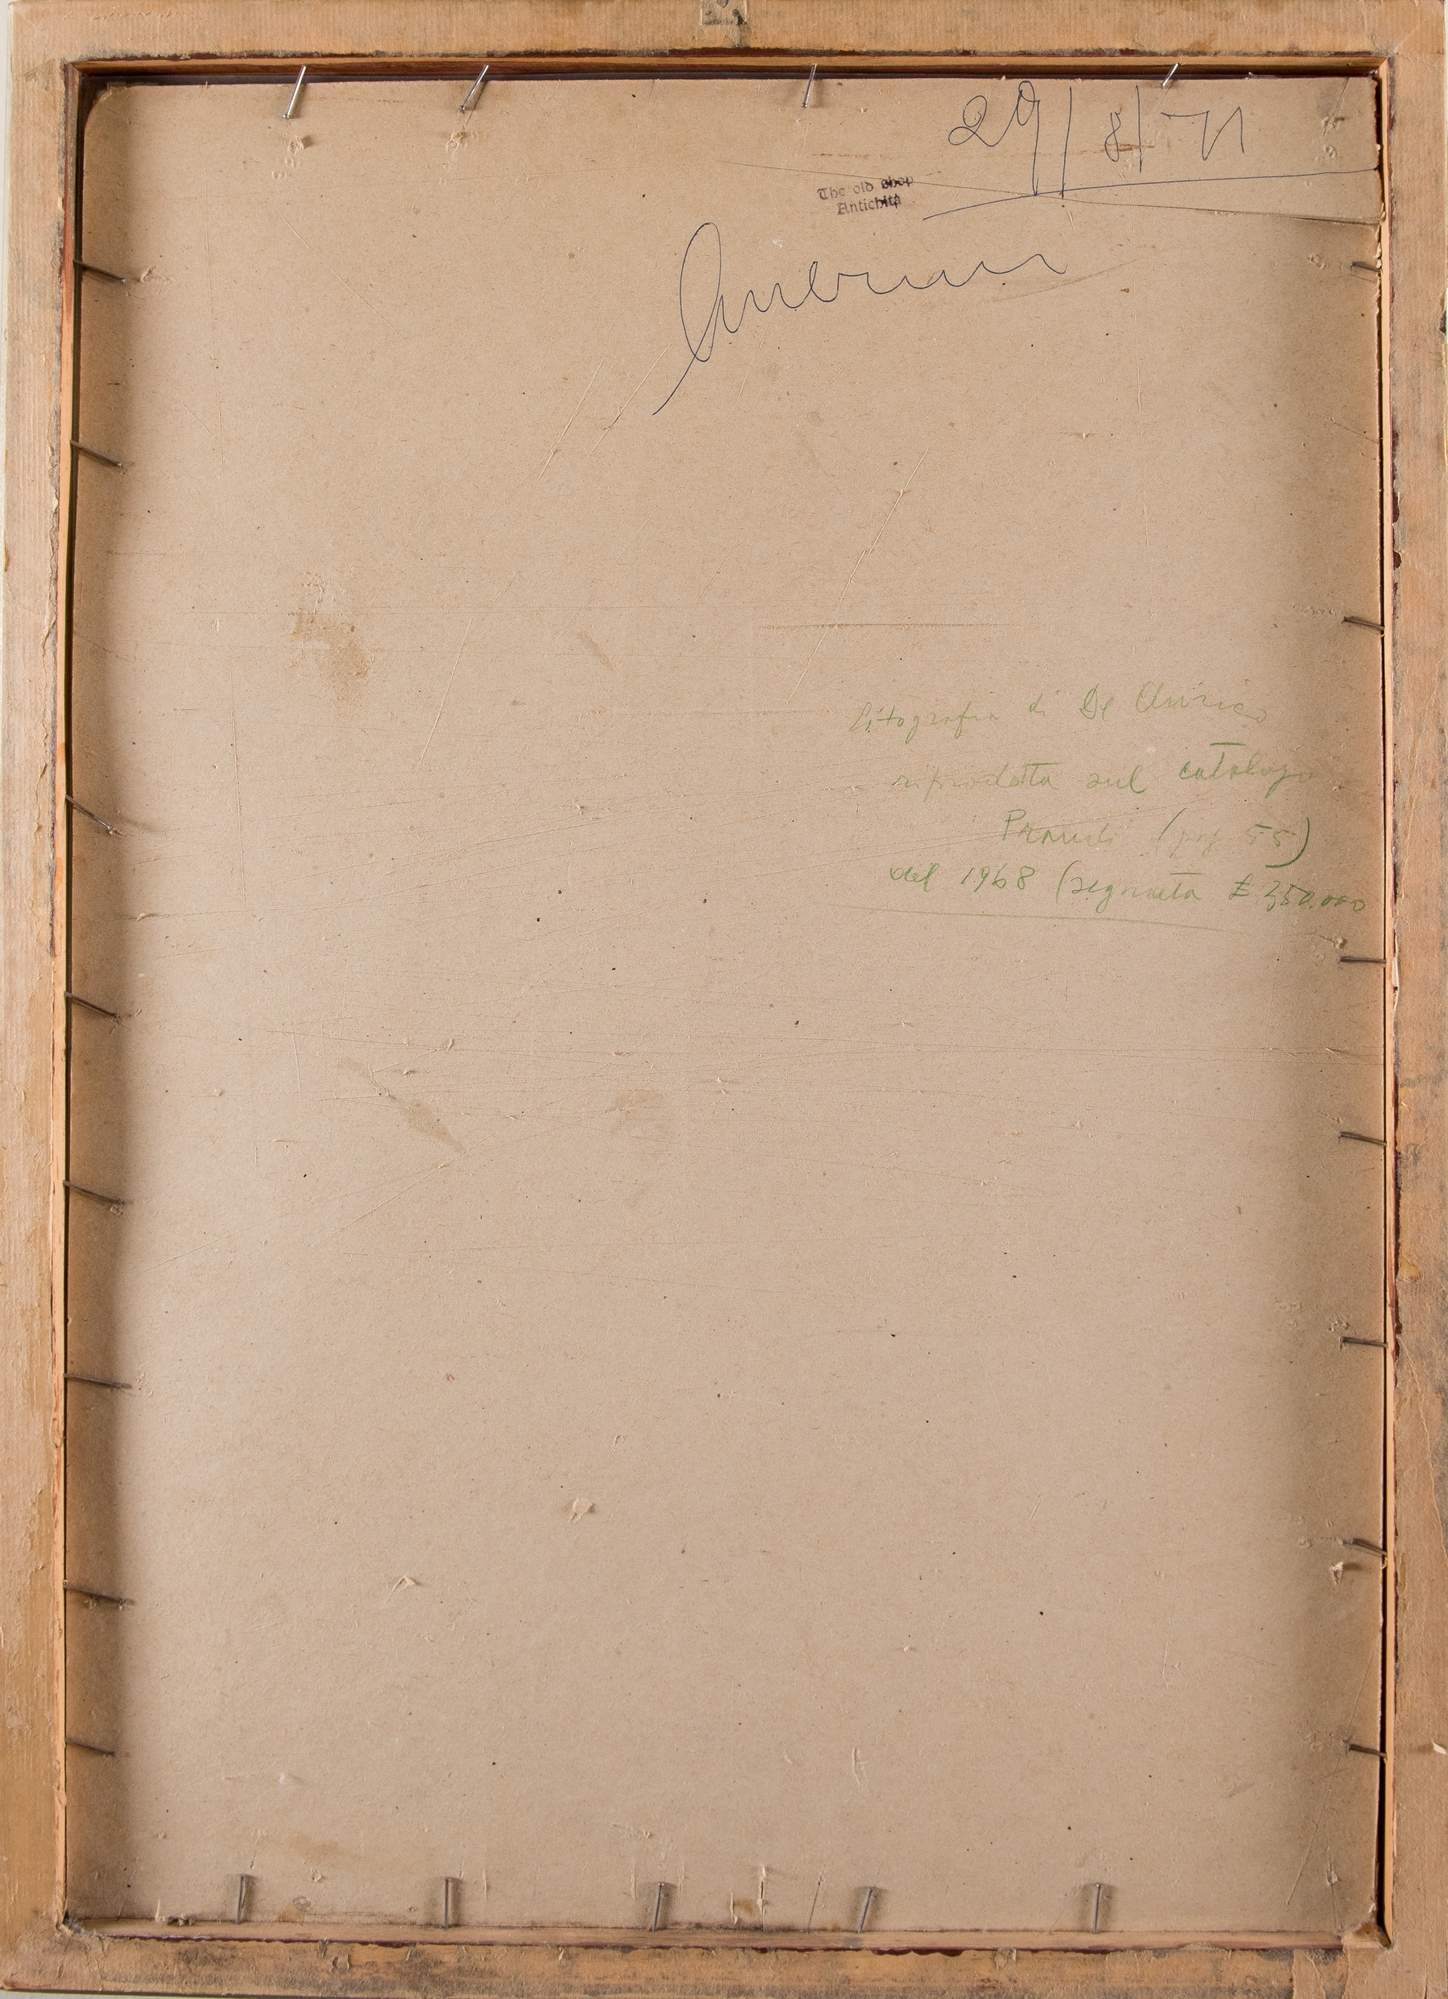 29/8/71
The old shop
Antichità
Litografia di De Chirico
riprodotta sul catalogo
Prandi (pag 55)
del 1968 (segnata £ 350.000